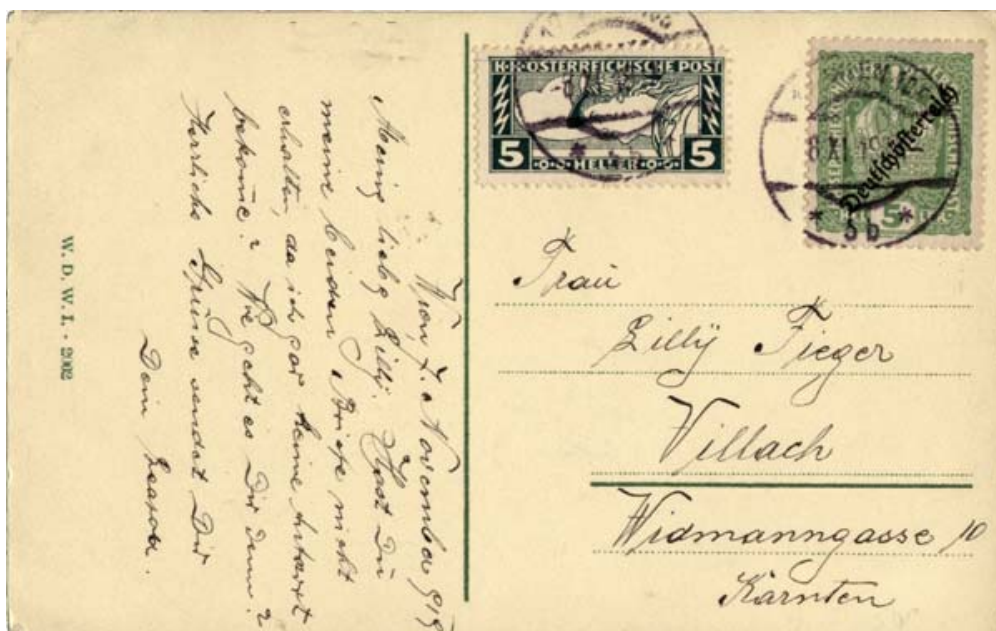 Wien, 7. November 919
Meine liebe Lilly! Hast Du
meine beiden Briefe nicht
erhalten, da ich gar keine Antwort
bekomme? Wie geht es Dir denn?
Herzliche Grüsse sendet Dir
Dein
W. D. W. I. - 2002
K.K. ÖSTERREICHISCHE POST
5 HELLER 5
Deutschösterreich
5
8 XI 19
* 5b *
Frau
Lilly Fieger
Villach
Widmanngasse 10
Kärnten